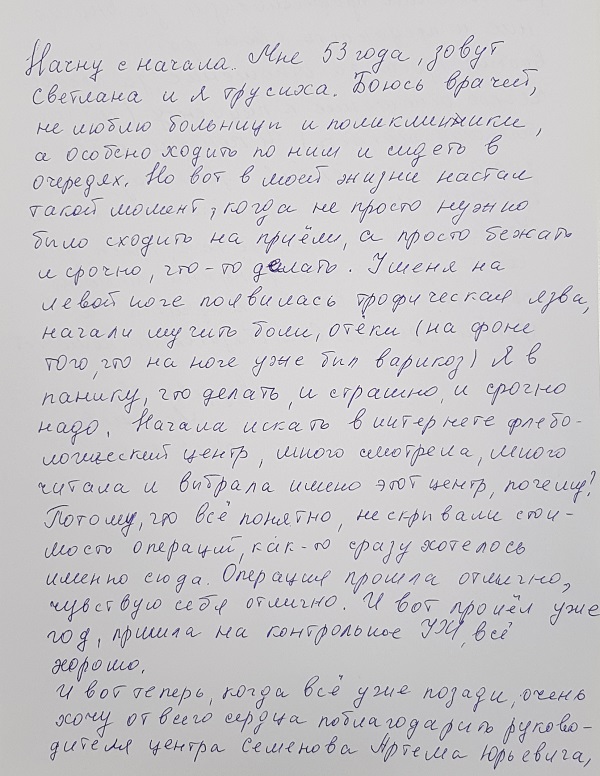 Начну с начала. Мне 53 года, зовут
Светлана и я трусиха. Боюсь врачей,
не люблю больницы и поликлиники,
а особено ходить по ним и сидеть в
очередях. Но вот в моей жизни настал
такой момент, когда не просто нужно
было сходить на приём, а просто бежать
и срочно, что-то делать. У меня на
левой ноге появилась трофическая язва,
начали мучить боли, отёки (на фоне
того, что на ноге уже был варикоз) Я в
панику, что делать, и страшно, и срочно
надо. Начала искать в интернете флебо-
логический центр, много смотрела, много
читала и выбрала имено этот центр, почему?
Потому, что всё понятно, не скрывали стои-
мость операций, как-то сразу хотелось
именно сюда. Операция прошла отлично,
чувствую себя отлично. И вот прошёл уже
год, пришла на контрольное УЗИ, всё
хорошо.
И вот теперь, когда всё уже позади, очень
хочу от всего сердца поблагодарить руково-
дителя центра Семенова Артема Юрьевича,